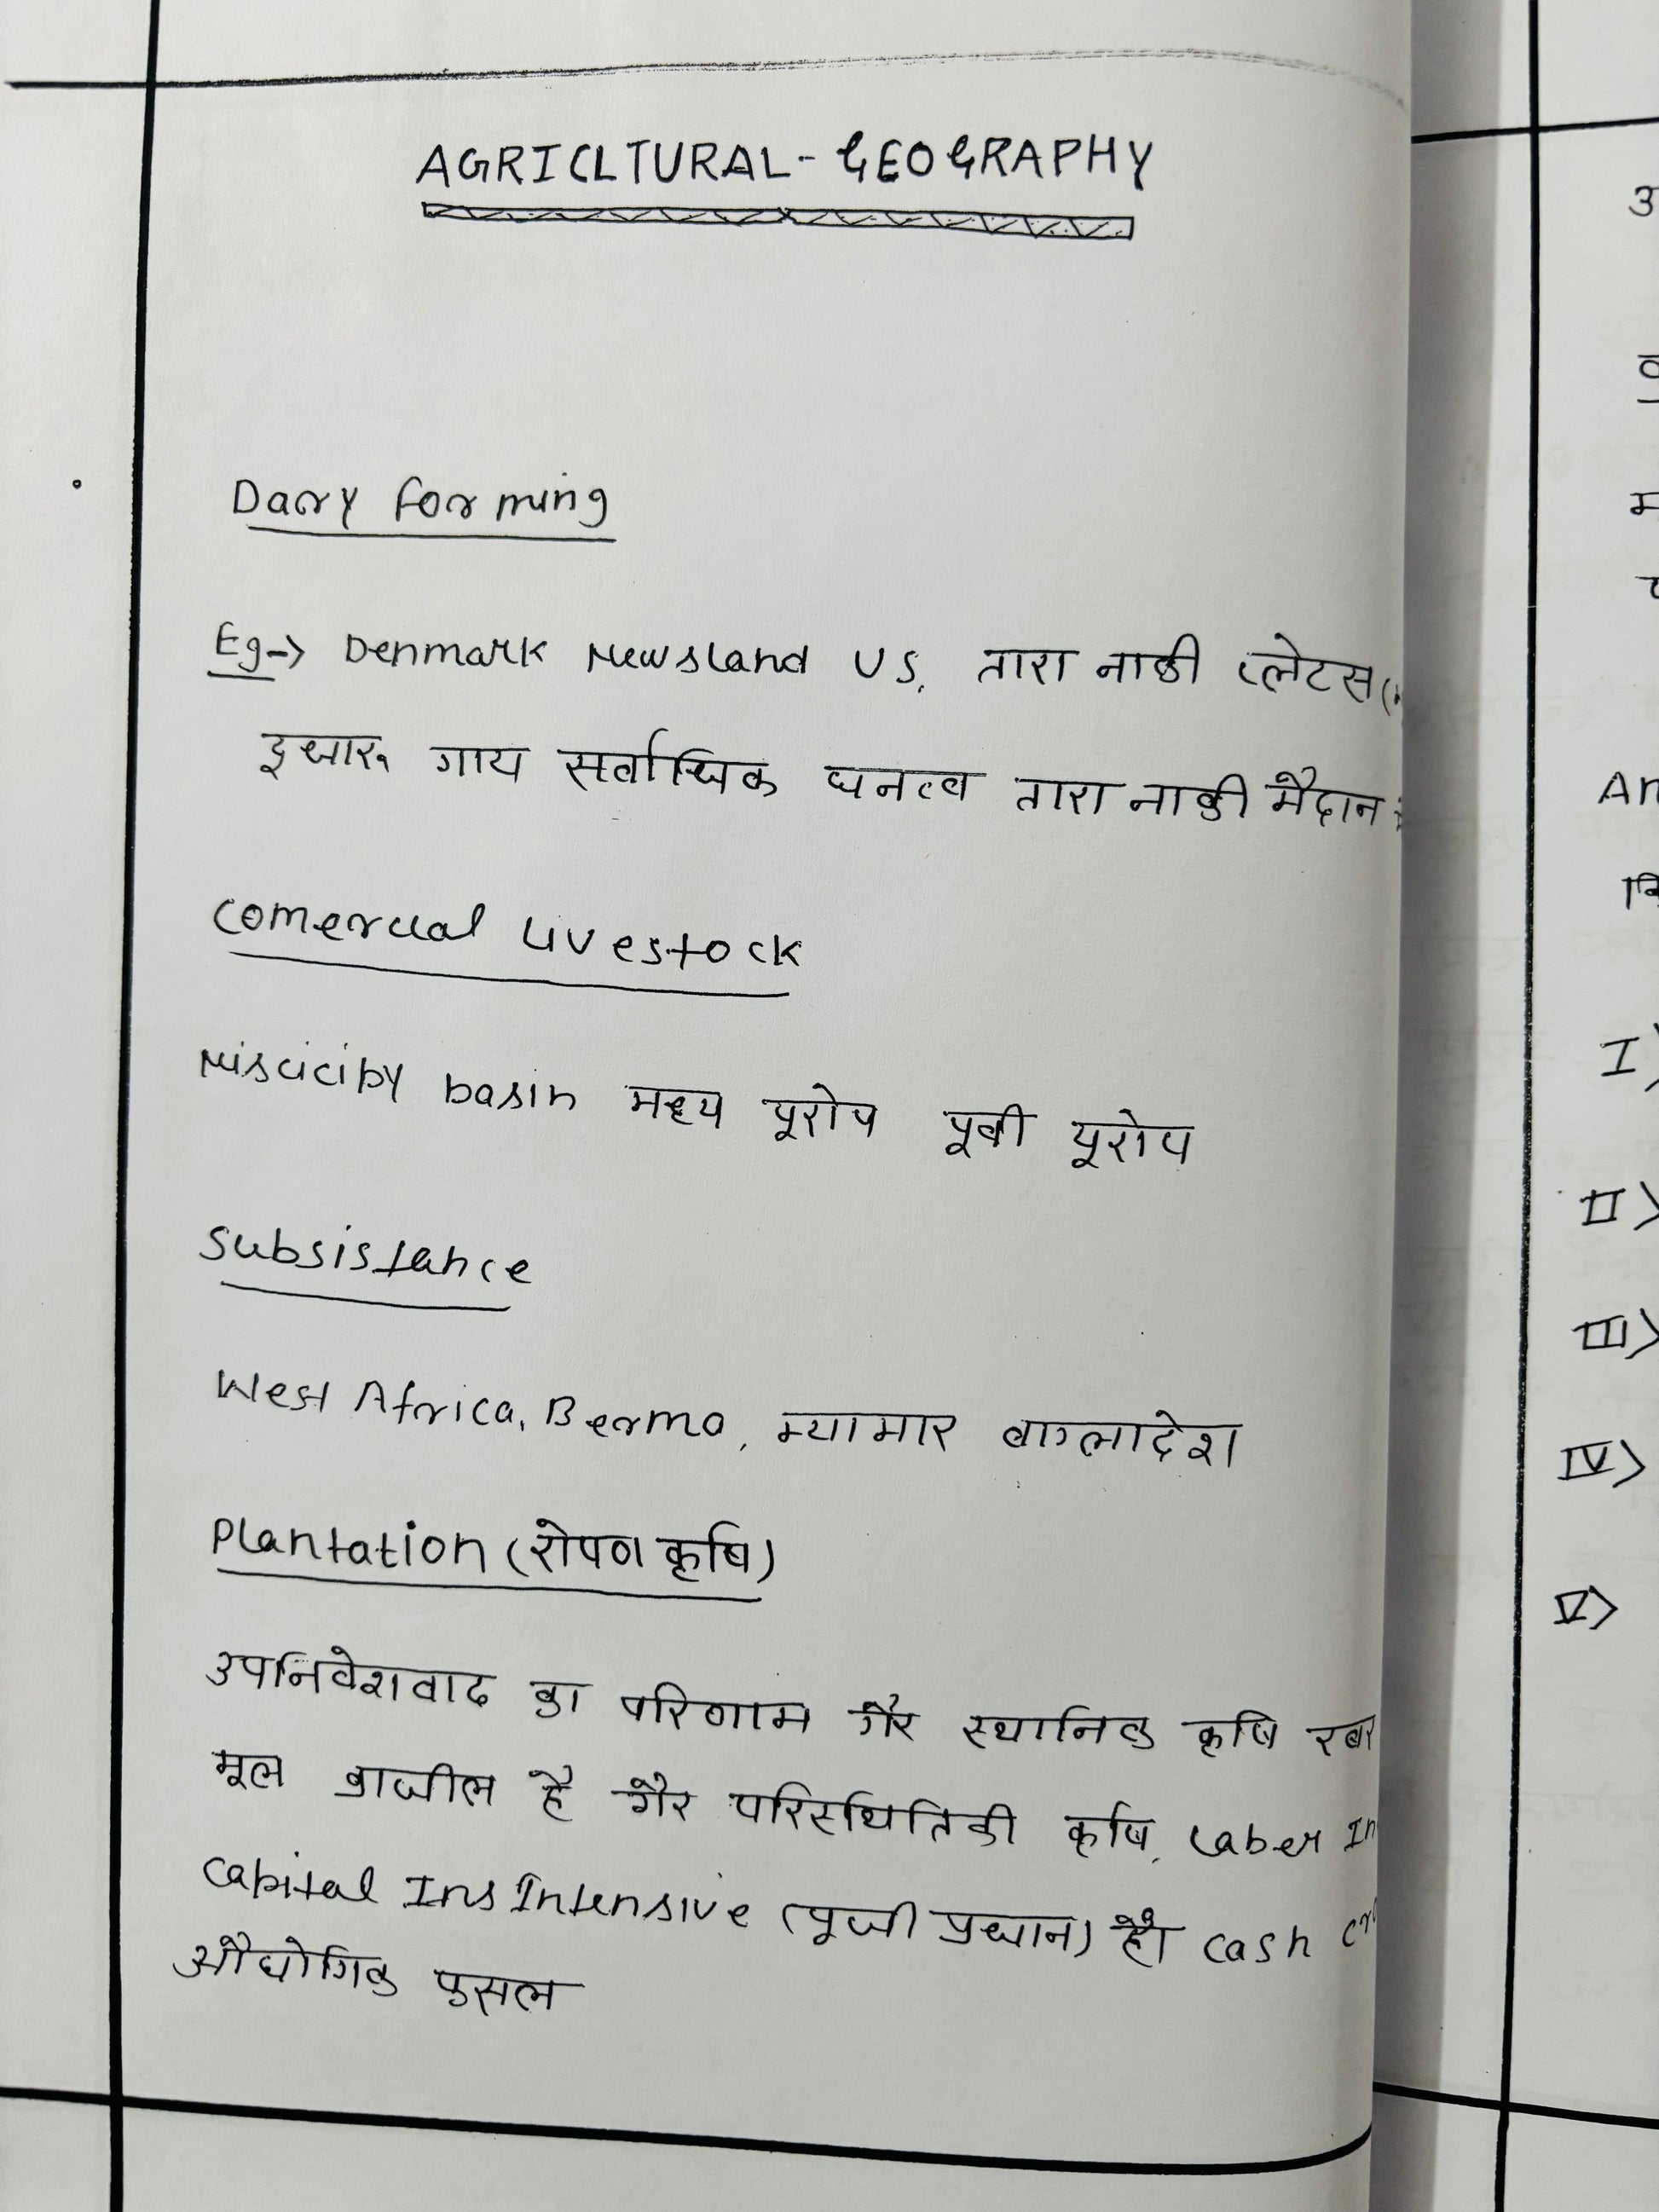 AGRICLTURAL-GEOGRAPHY
Dary forming
Eg-> Denmark Newsland US, तारा नाकी प्लेटस
दुधारू गाय सर्वाधिक घनत्व तारा नाकी मैदान
comercial livestock
Miscicipy basin मध्य यूरोप पूर्वी यूरोप
Subsistance
West Africa, Berma, म्यामार बाग्लादेश
Plantation (रोपण कृषि)
उपनिवेशवाद का परिणाम गैर स्थानिक कृषि रबर
मूल ब्राजील है गैर परिस्थितिकी कृषि, Laber In
Capital Ins Intensive (पूजी प्रधान) है। cash cr
औद्योगिक फसल
An
I)
II>
III>
IV>
V>